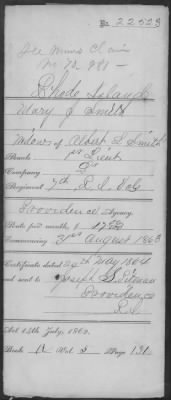 No. 22523
See Minor Claim
No.
Rhode Island
Mary J Smith
Widow of Albert L Smith
Rank 1st Lieut
Company
Regiment 7th R. I. Vols
Providence Agency.
Rate paid month, $ 17
Commencing 3rd August 1863
Certificate dated May 1864
and sent to Joseph
Providence
R. I.
Act 14th July, 1862.
Book A Vol. 2 Page 131